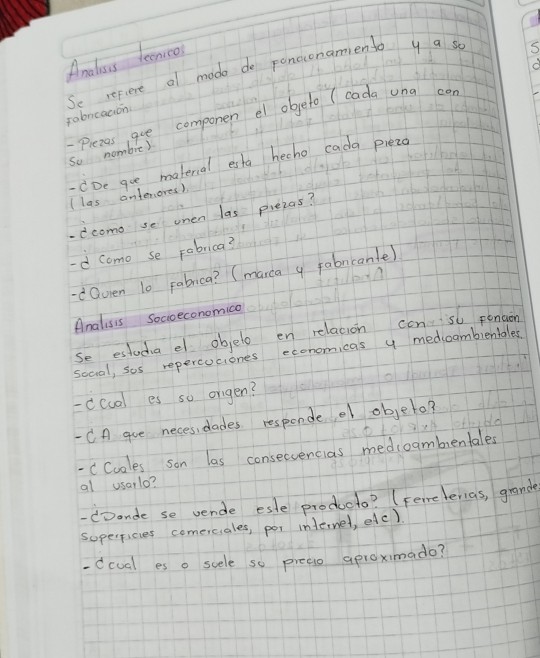 Analisis tecnico:
Se refiere al modo de foncionamiento y a so
fabricación
- Piezas que componen el objeto (cada una con
su nombre)
- ¿De que material esta hecho cada pieza
(las anteriores)
- ¿como se unen las piezas?
- ¿Como se fabrica?
- ¿Quien lo fabrica? (marca y fabricante)
Analisis Socioeconomico
Se estudia el objeto en relación con su fonción
Social, sus repercuciones economicas y medioambientales
- ¿Cual es so origen?
- ¿A que necesidades responde el objeto?
- ¿Cuales son las consecuencias medioambientales
al usarlo?
- ¿Donde se vende este producto? (Ferreterias, grande
superficies comerciales, por internet, etc)
- ¿cual es o suele so precio aproximado?